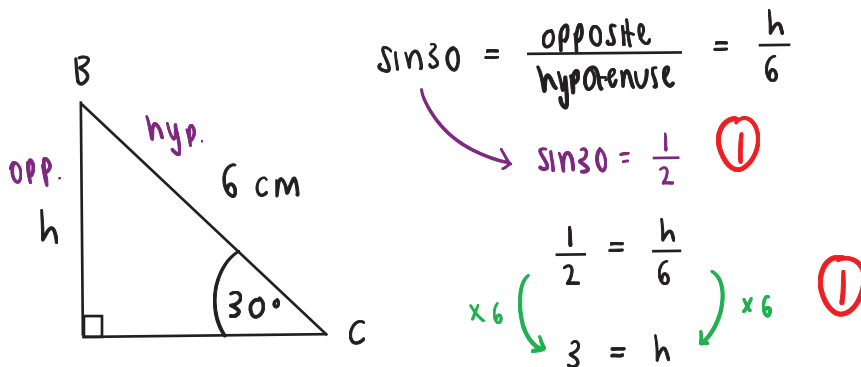 B
opp.
h
hyp.
6 cm
30°
C
sin30 = opposite / hypotenuse = h / 6
sin30 = 1 / 2
1
1 / 2 = h / 6
x 6
x 6
1
3 = h